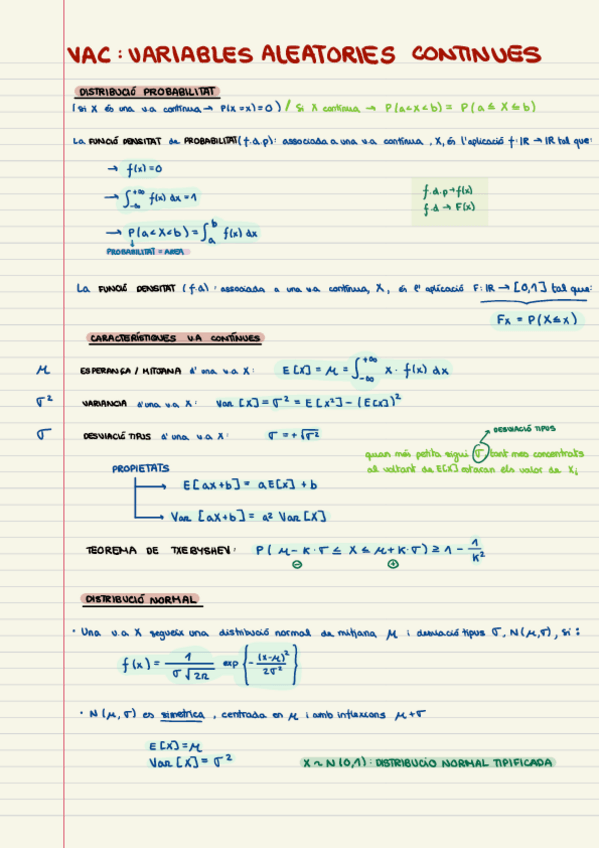 VAC: VARIABLES ALEATORIES CONTINUES
DISTRIBUCIÓ PROBABILITAT
(si X és una v.a contínua → P(X=x)=0) / Si X contínua → P(a<X<b) = P(a≤X≤b)
La FUNCIÓ DENSITAT de PROBABILITAT (f.d.p): associada a una v.a contínua, X, és l'aplicació f: IR → IR tal que:
→ f(x)=0
→ ∫_{-∞}^{+∞} f(x) dx = 1
f.d.p → f(x)
f.d → F(x)
→ P(a<X<b) = ∫_a^b f(x) dx
↓
PROBABILITAT = AREA
La FUNCIÓ DENSITAT (f.d): associada a una v.a contínua, X, és l'aplicació F: IR → [0,1] tal que:
Fx = P(X≤x)
CARACTERÍSTIQUES V.A CONTÍNUES
μ ESPERANÇA / MITJANA d'una v.a X: E[X] = μ = ∫_{-∞}^{+∞} x · f(x) dx
σ² VARIANCIA d'una v.a X: Var [X] = σ² = E[X²] - (E[X])²
σ DESVIACIÓ TIPUS d'una v.a X: σ = + √σ²
DESVIACIÓ TIPUS
quan més petita sigui σ, tant mes concentrats
al voltant de E[X] estaran els valor de Xi
PROPIETATS
→ E[aX+b] = aE[X] + b
→ Var [aX+b] = a² Var [X]
TEOREMA DE TXEBYSHEV: P( μ - K·σ ≤ X ≤ μ + K·σ) ≥ 1 - 1/K²
⊖ ⊕
DISTRIBUCIÓ NORMAL
· Una v.a X segueix una distribució normal de mitjana μ i desviació tipus σ, N(μ,σ), si:
f(x) = 1/(σ√2π) exp {-(x-μ)²/2σ²}
· N(μ,σ) es simetrica, centrada en μ i amb inflexions μ+σ
E[X]=μ
Var [X] = σ²
X ~ N(0,1): DISTRIBUCIO NORMAL TIPIFICADA